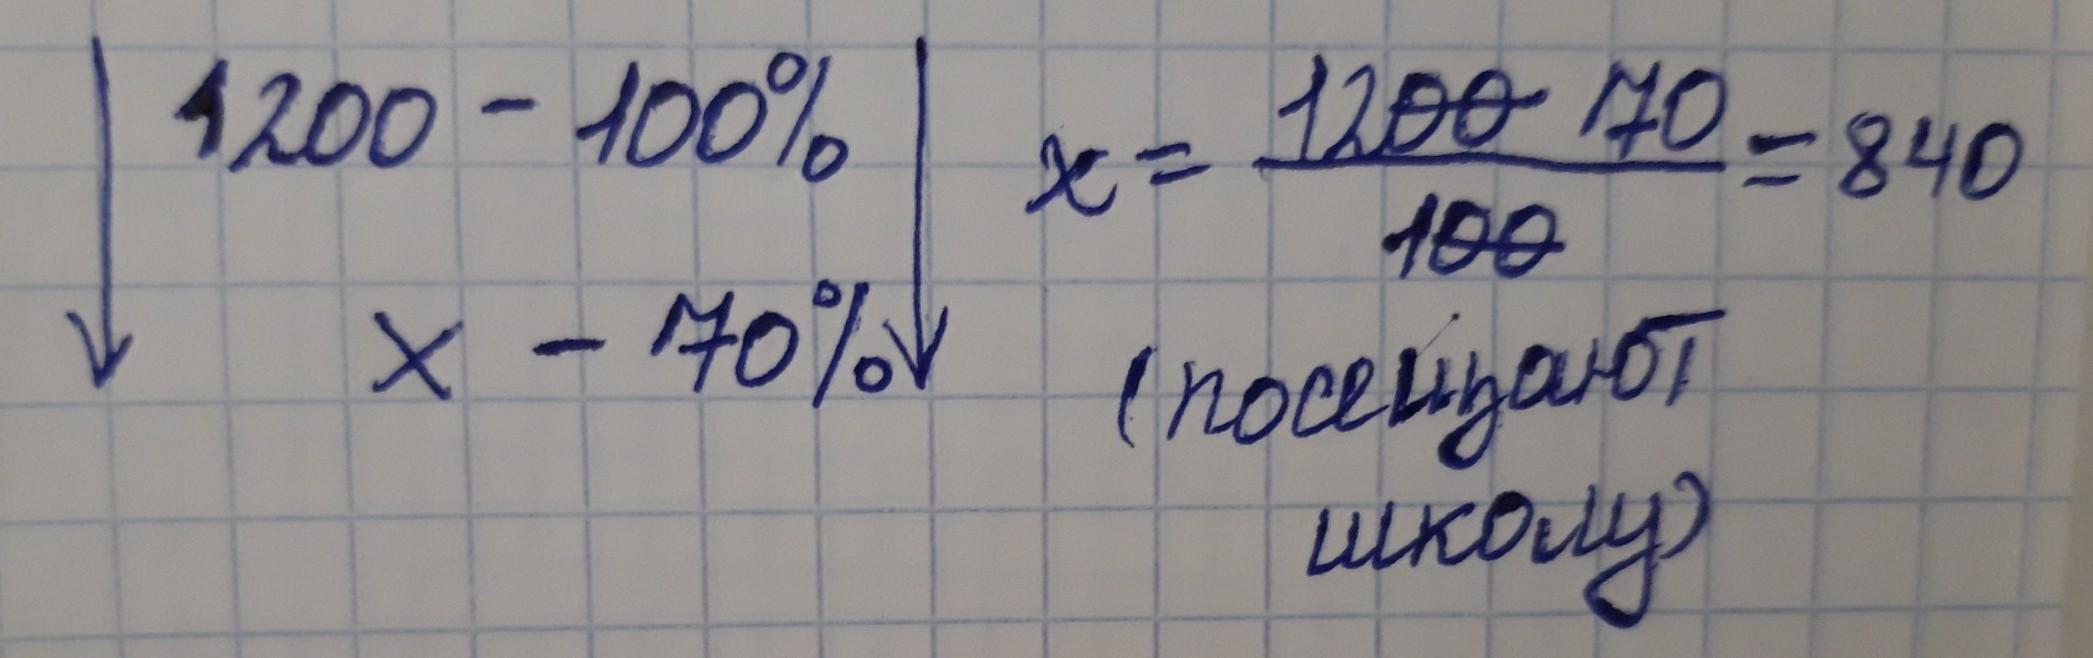 1200 - 100%
x - 70%
x = 1200 70 / 100 = 840
(посещают
школу)